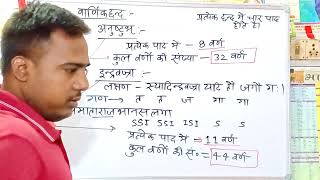 वार्णिकछन्द :-
प्रत्येक छन्द में चार पाद
होते हैं।
अनुष्टुप् :-
प्रत्येक पाद में — 8 वर्ण
कुल वर्णों की संख्या — 32 वर्ण
इन्द्रवज्रा :-
लक्षण - स्यादिन्द्रवज्रा यदि तौ जगौ गः।
गण → त त ज गा गा
यमाताराजभानसलगा
SSI SSI ISI S S
प्रत्येक पाद में — 11 वर्ण
कुल वर्णों की सं० = 44 वर्ण